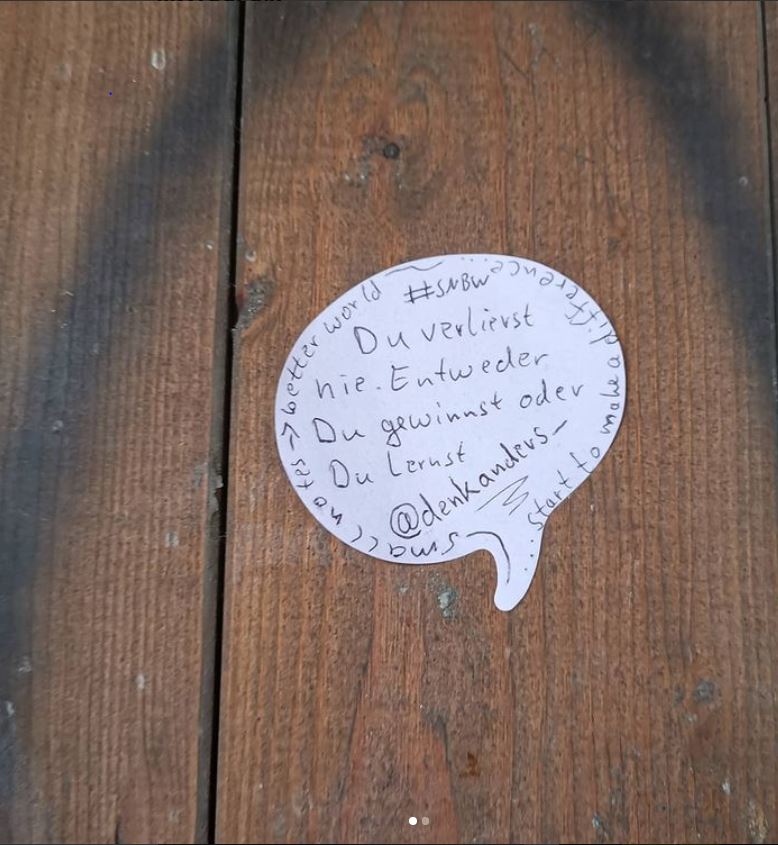 #SNBW
Du verlierst
nie. Entweder
Du gewinnst oder
Du lernst
@denkanders_
small notes -> better world
...start to make a difference...